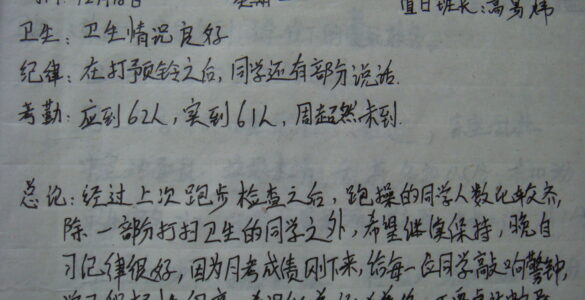 12月18日 星期一 值日班长:高
卫生:卫生情况良好
纪律:在打预铃之后,同学还有部分说话.
考勤:应到62人,实到61人,周超然未到.
总论:经过上次跑步检查之后,跑操的同学人数比较齐,
除一部分打扫卫生的同学之外,希望继续保持,晚自
习纪律很好,因为月考成绩刚下来,给每一位同学敲响警钟,